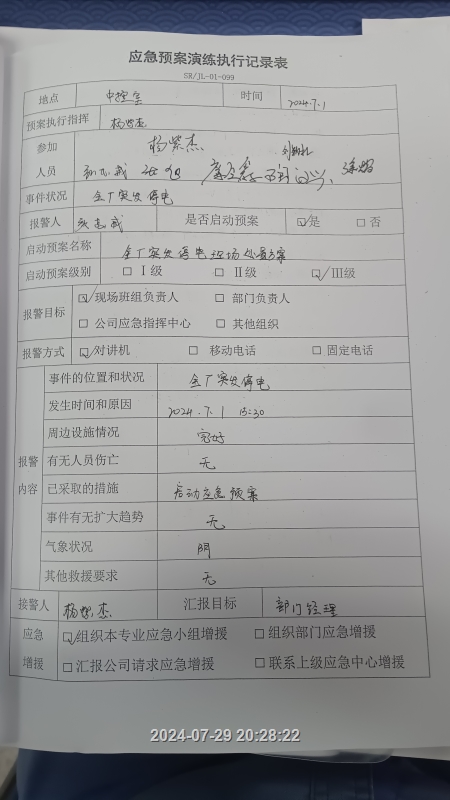 应急预案演练执行记录表
SR/JL-01-099
地点 中控室 时间 2024.7.1
预案执行指挥 杨紫杰
参加人员 杨紫杰
事件状况 全厂突发停电
报警人 是否启动预案 ☑是 □否
启动预案名称 全厂突发停电现场处置方案
启动预案级别 □Ⅰ级 □Ⅱ级 ☑Ⅲ级
报警目标 ☑现场班组负责人 □部门负责人
□公司应急指挥中心 □其他组织
报警方式 ☑对讲机 □移动电话 □固定电话
报警内容 事件的位置和状况 全厂突发停电
发生时间和原因 2024.7.1 15:30
周边设施情况 完好
有无人员伤亡 无
已采取的措施 启动应急预案
事件有无扩大趋势 无
气象状况 阴
其他救援要求 无
接警人 杨紫杰 汇报目标 部门经理
应急增援 ☑组织本专业应急小组增援 □组织部门应急增援
□汇报公司请求应急增援 □联系上级应急中心增援
2024-07-29 20:28:22